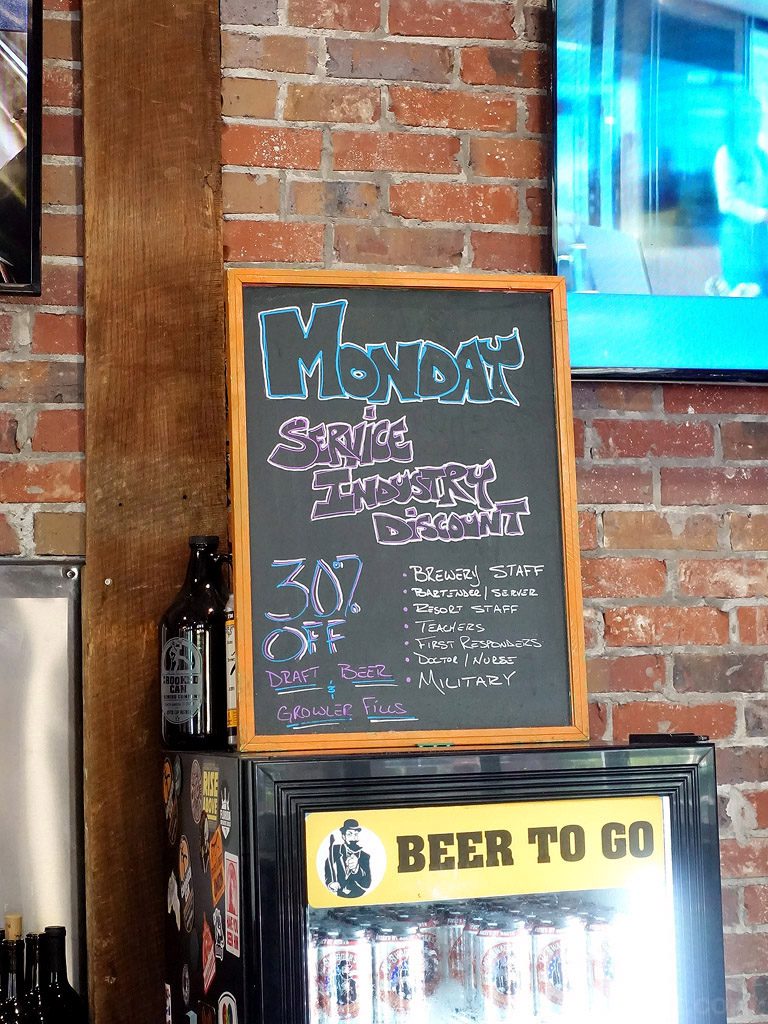 MONDAY
SERVICE
INDUSTRY
DISCOUNT
30%
OFF
DRAFT BEER
&
GROWLER FILLS
• BREWERY STAFF
• BARTENDER / SERVER
• RESORT STAFF
• TEACHERS
• FIRST RESPONDERS
• DOCTOR / NURSE
• MILITARY
CROOKED
CAN
BREWING COMPANY
RISE
ABOVE
BEER TO GO